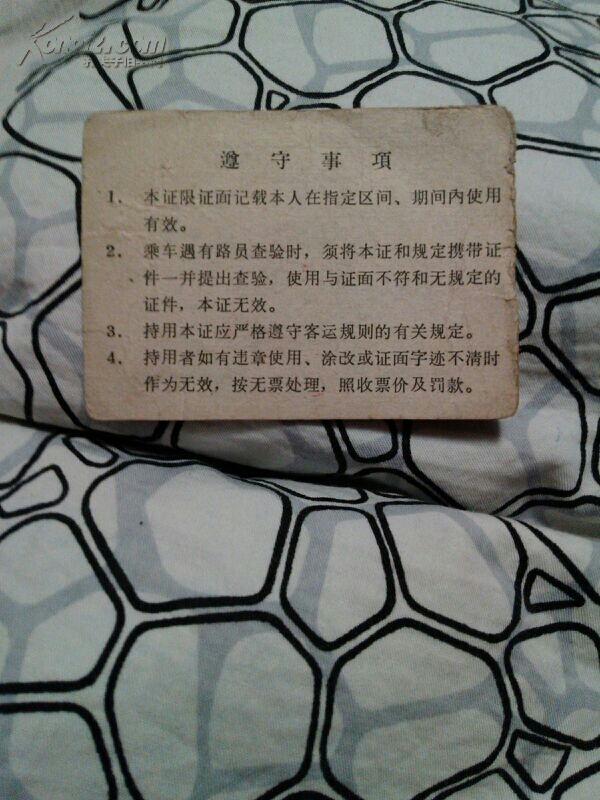 Kongfz.com
孔夫子旧书网
遵守事項
1. 本证限证面记载本人在指定区间、期间内使用
有效。
2. 乘车遇有路员查验时，须将本证和规定携带证
件一并提出查验，使用与证面不符和无规定的
证件，本证无效。
3. 持用本证应严格遵守客运规则的有关规定。
4. 持用者如有违章使用、涂改或证面字迹不清时
作为无效，按无票处理，照收票价及罚款。